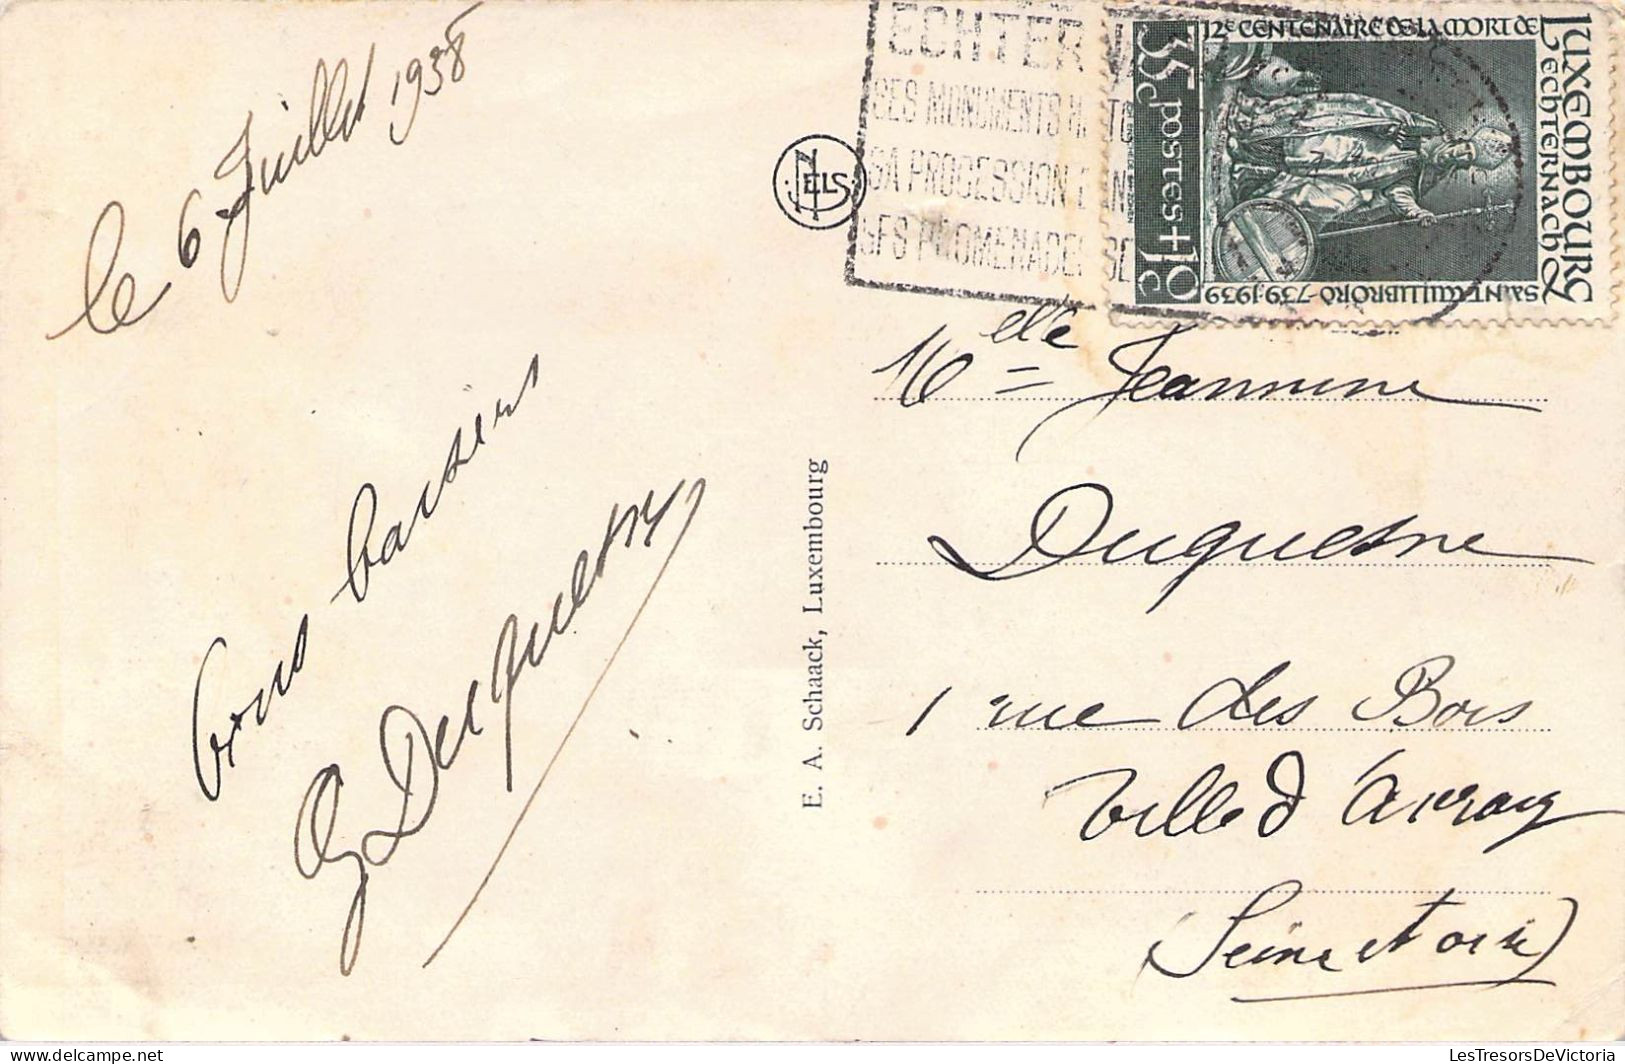 le 6 Juillet 1938
bons baisers
G Duquesne
NELS
E. A. Schaack, Luxembourg
ECHTER
SES MONUMENTS
SA PROCESSION
SES PROMENADES
LUXEMBOURG
ECHTERNACH
12e CENTENAIRE DE LA MORT DE
SAINT WILLIBRORD-739-1939
35c postes+10c
Melle Jeannine
Duquesne
1 rue des Bois
Ville d'Avray
(Seine et oise)
LesTresorsDeVictoria LesTresorsDeVictoria